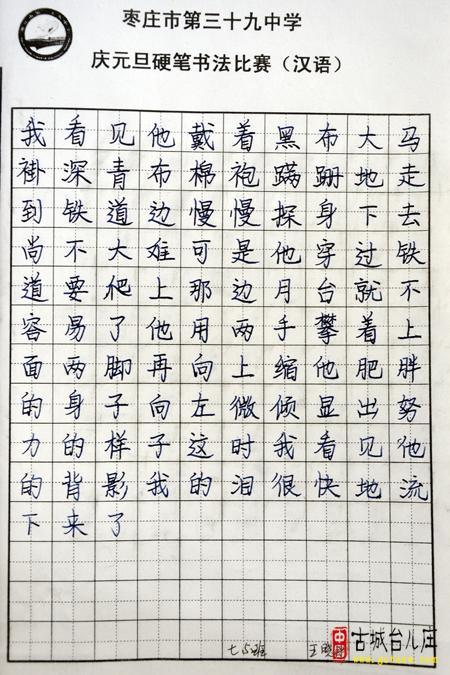 枣庄市第三十九中学
庆元旦硬笔书法比赛（汉语）
我看见他戴着黑布大马
褂深青布棉袍蹒跚地走
到铁道边慢慢探身下去
尚不大难可是他穿过铁
道要爬上那边月台就不
容易了他用两手攀着上
面两脚再向上缩他肥胖
的身子向左微倾显出努
力的样子这时我看见他
的背影我的泪很快地流
下来了
七5班 王晓
古城台儿庄